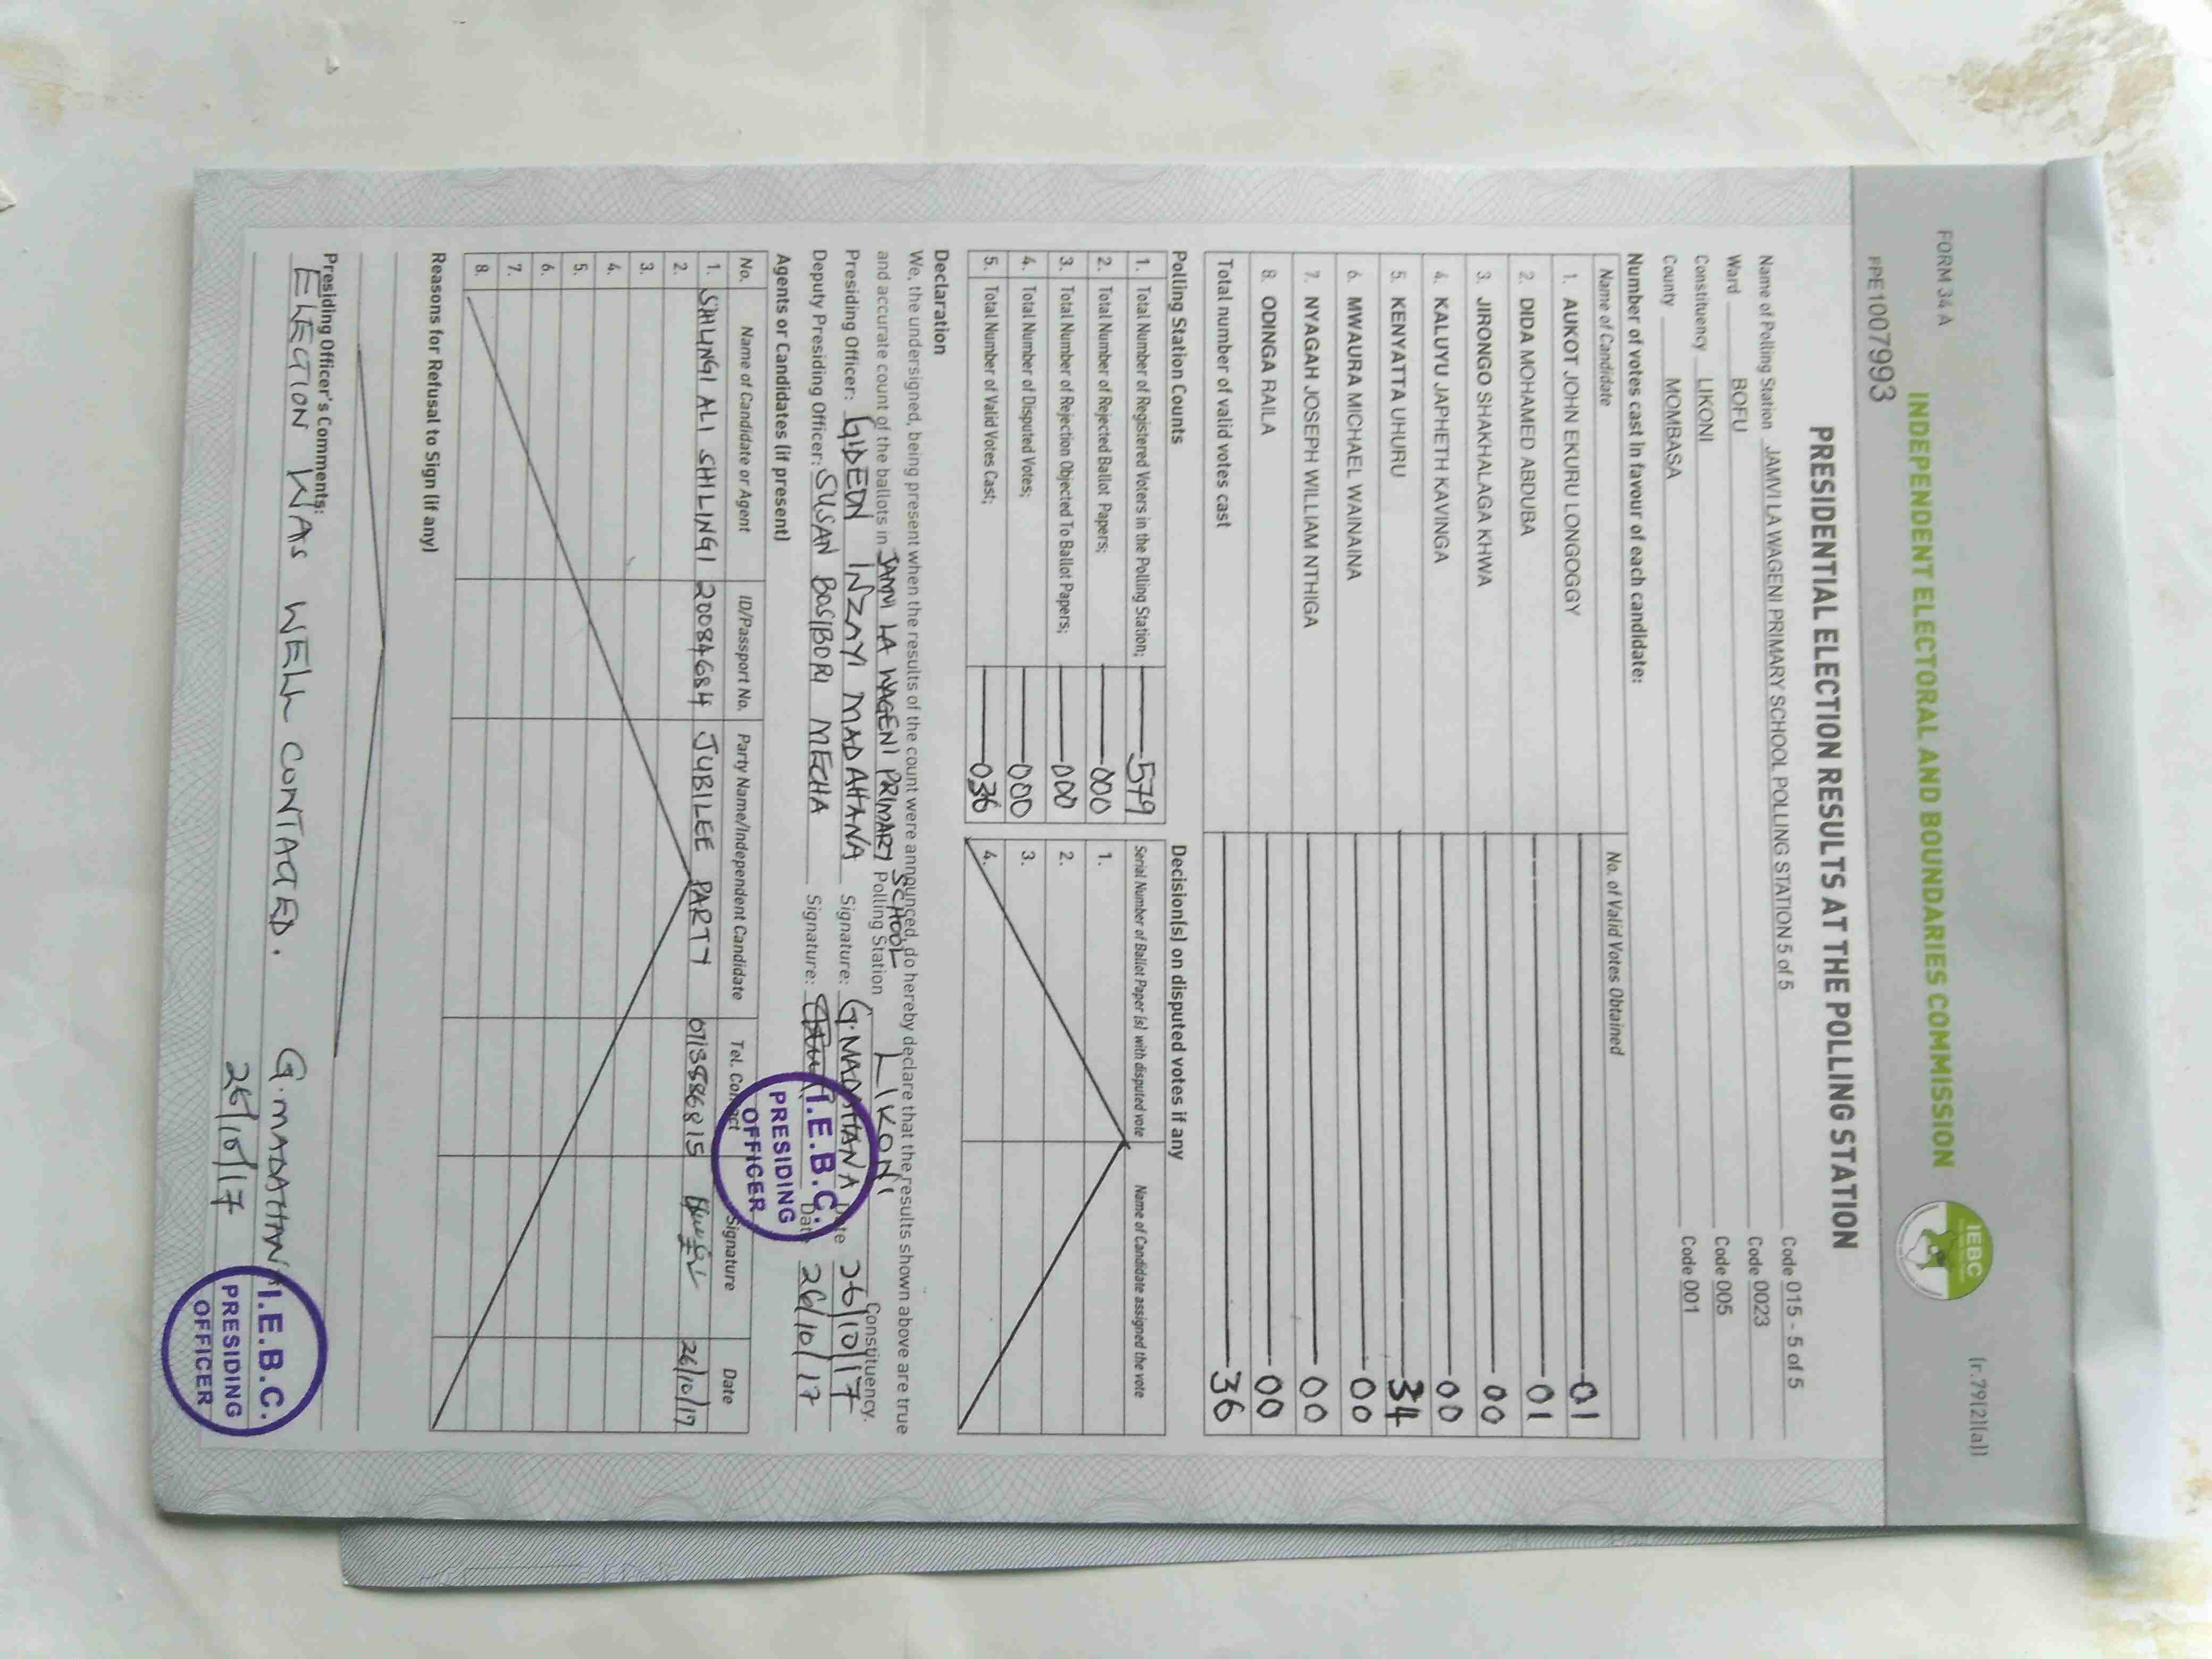 FORM 34 A
(r.79(2)(a))
INDEPENDENT ELECTORAL AND BOUNDARIES COMMISSION
IEBC
FPE1007993
PRESIDENTIAL ELECTION RESULTS AT THE POLLING STATION
Name of Polling Station JAMVI LA WAGENI PRIMARY SCHOOL POLLING STATION 5 of 5 Code 015 - 5 of 5
Ward BOFU Code 0023
Constituency LIKONI Code 005
County MOMBASA Code 001
Number of votes cast in favour of each candidate:
Name of Candidate No. of Valid Votes Obtained
1. AUKOT JOHN EKURU LONGOGGY 01
2. DIDA MOHAMED ABDUBA 01
3. JIRONGO SHAKHALAGA KHWA 00
4. KALUYU JAPHETH KAVINGA 00
5. KENYATTA UHURU 34
6. MWAURA MICHAEL WAINAINA 00
7. NYAGAH JOSEPH WILLIAM NTHIGA 00
8. ODINGA RAILA 00
Total number of valid votes cast 36
Polling Station Counts Decision(s) on disputed votes if any
1. Total Number of Registered Voters in the Polling Station; 579 Serial Number of Ballot Paper (s) with disputed vote Name of Candidate assigned the vote
2. Total Number of Rejected Ballot Papers; 000 1.
3. Total Number of Rejection Objected To Ballot Papers; 000 2.
4. Total Number of Disputed Votes; 000 3.
5. Total Number of Valid Votes Cast; 036 4.
Declaration
We, the undersigned, being present when the results of the count were announced, do hereby declare that the results shown above are true
and accurate count of the ballots in JAMVI LA WAGENI PRIMARY SCHOOL Polling Station LIKONI Constituency.
Presiding Officer: GIDEON INZAYI MADAHANA Signature: G.MADAHANA Date 26/10/17
Deputy Presiding Officer: SUSAN BOSIBORI MECHA Signature: Date 26/10/17
I.E.B.C.
PRESIDING
OFFICER
Agents or Candidates (if present)
No. Name of Candidate or Agent ID/Passport No. Party Name/Independent Candidate Tel. Contact Signature Date
1. SHILINGI ALI SHILINGI 20084684 JUBILEE PARTY 0713586815 26/10/17
2.
3.
4.
5.
6.
7.
8.
Reasons for Refusal to Sign (if any)
Presiding Officer's Comments:
ELECTION WAS WELL CONTACED. G.MADAHANA
26/10/17
I.E.B.C.
PRESIDING
OFFICER